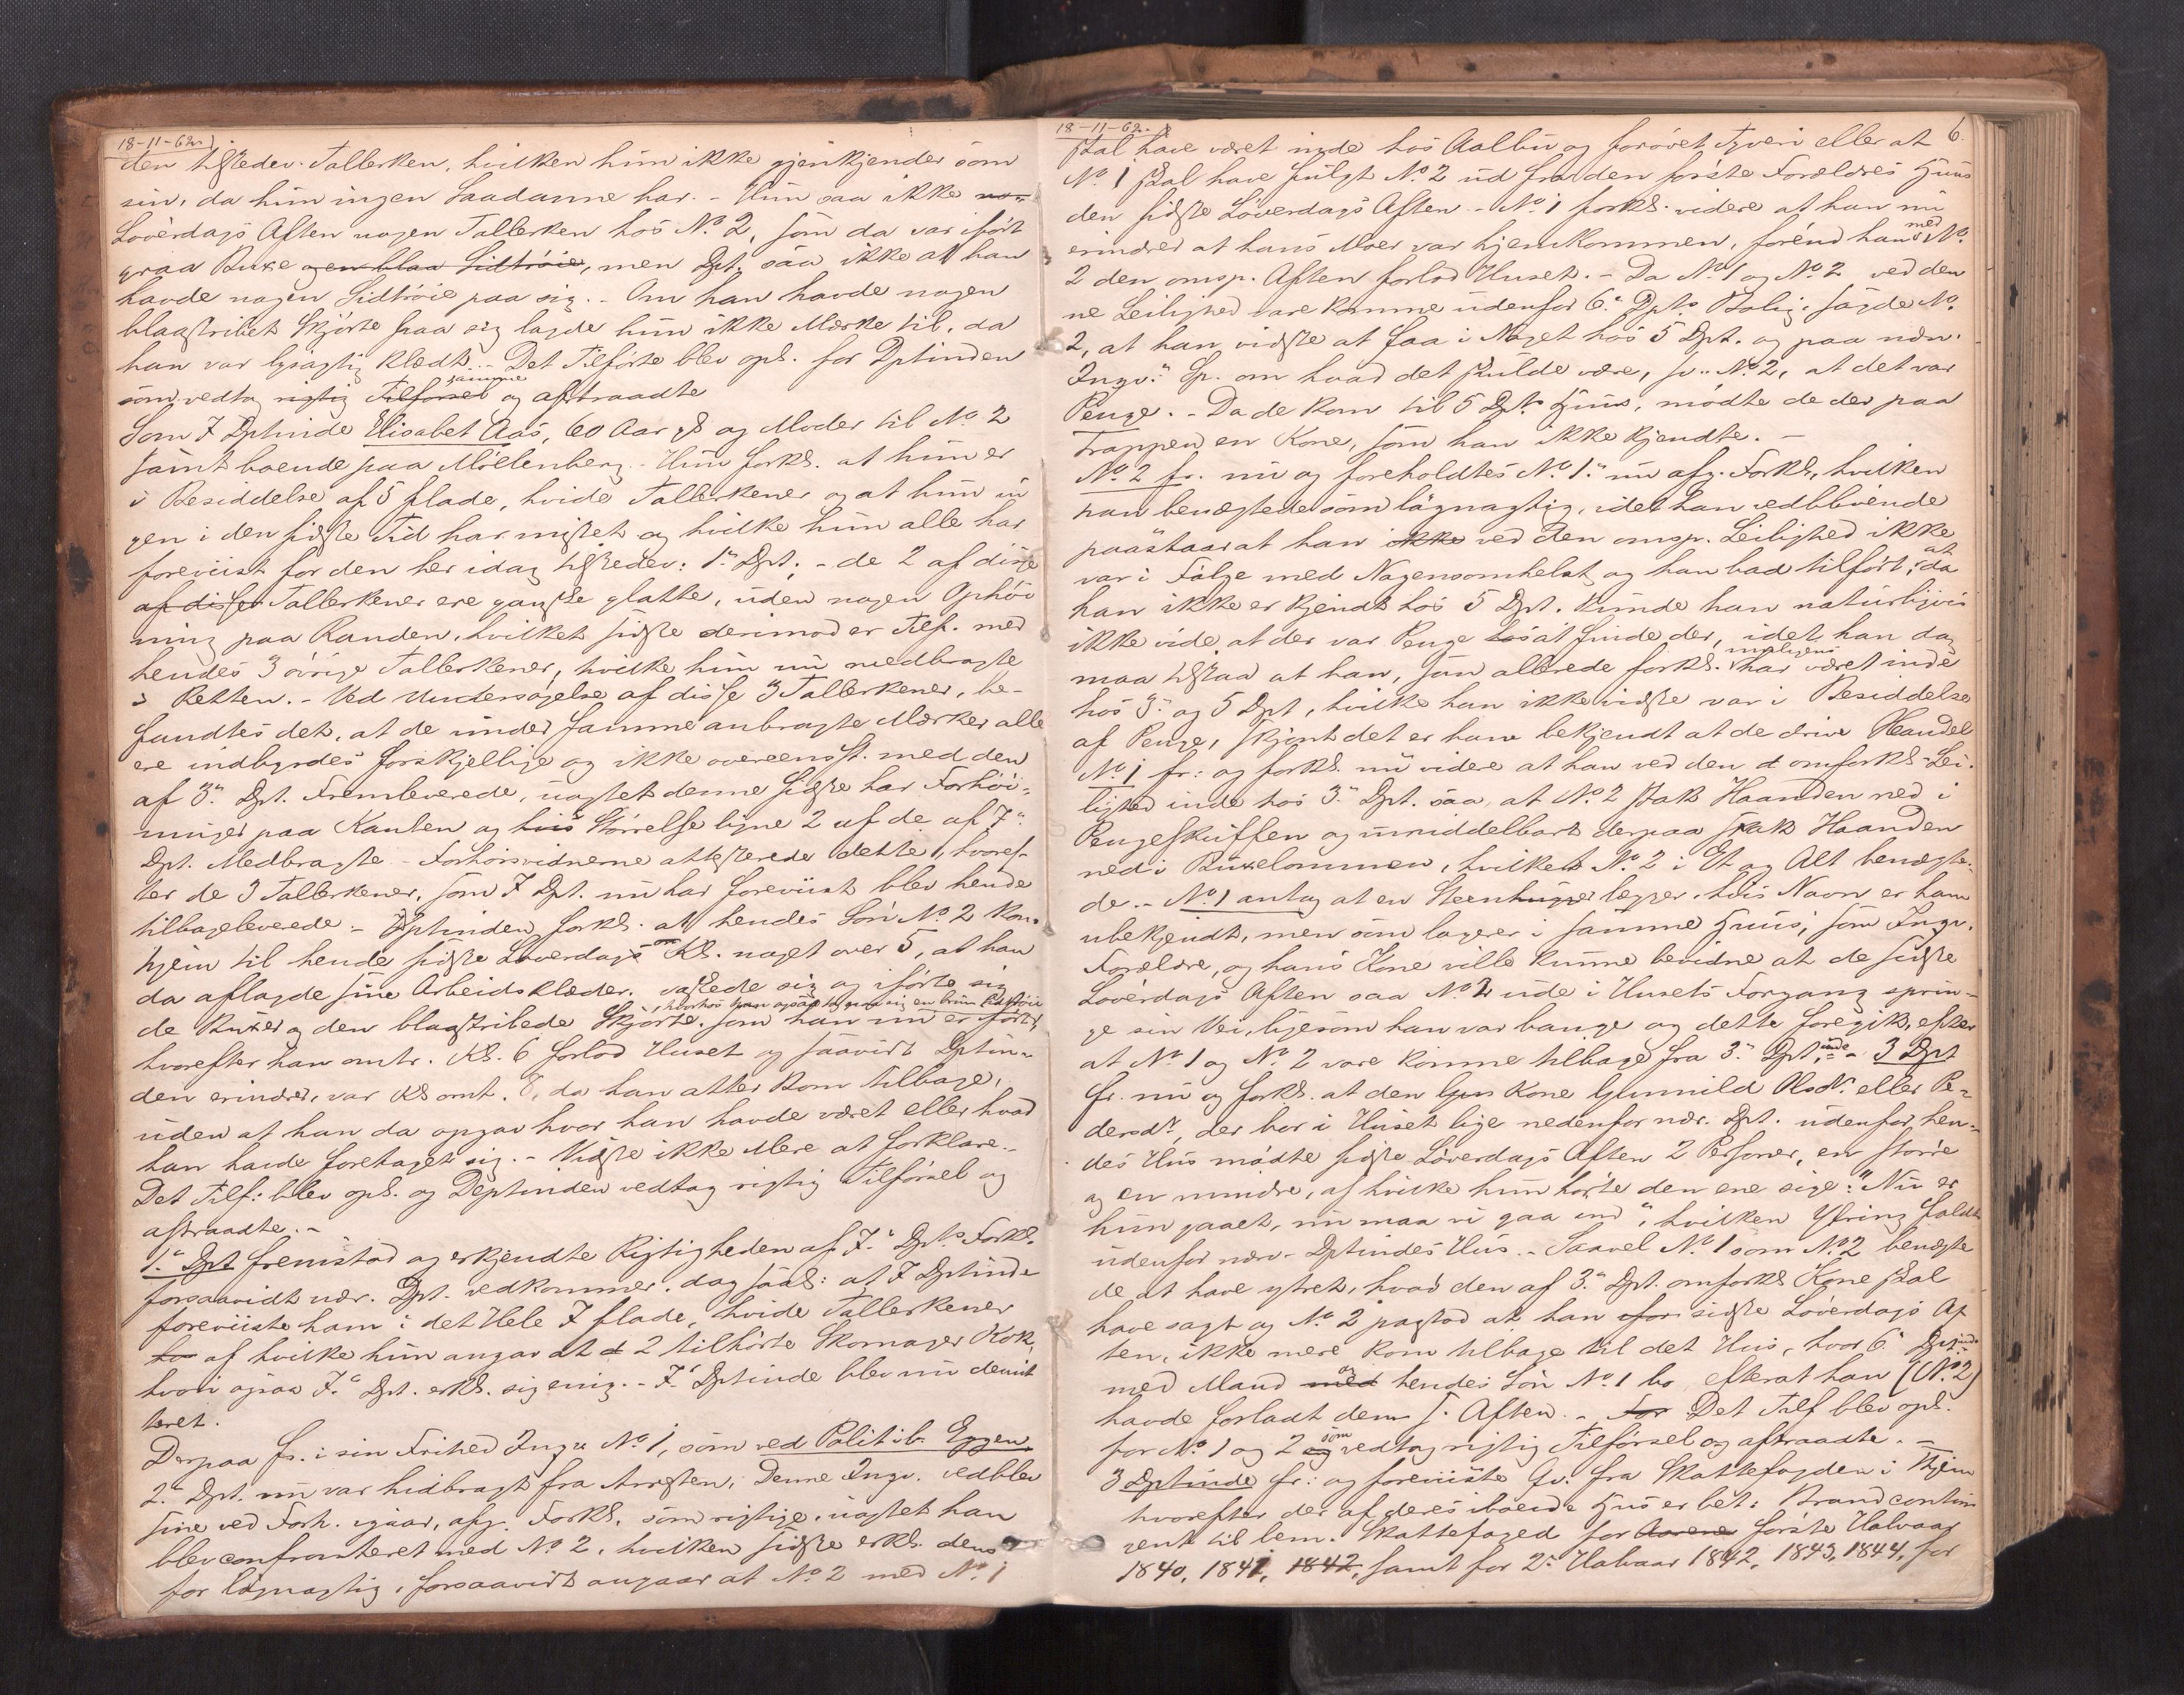 18-11-62.
den tilstedev. Tallerken, hvilken hun ikke gjenkjender som
sin, da hun ingen Saadanne har. - Hun saa ikke no-
Løverdags Aften nogen Tallerken hos No. 2, som da var iført
graa Buxe og en blaa Sidtrøie, men Dpt. saa ikke at han
havde nogen Sidtrøie paa sig. - Om han havde nogen
blaastribet Skjorte paa sig lagde hun ikke Mærke til, da
han var lysagtig klædt. - Det Tilførte blev opl. for Dptinden
som vedtog rigtig Tilførsel samme og aftraadte
Som 7 Dptinde Elisabet Aas, 60 Aar gl og Moder til No. 2
samt boende paa Møllenberg. - Hun forkl. at hun er
i Besiddelse af 5 flade, hvide Tallerkener og at hun in
gen i den sidste Tid har mistet og hvilke hun alle har
foreviist for den her idag tilstedev: 1ste Dpt. - de 2 af disse
af disse Tallerkener ere ganske glatte, uden nogen Ophøi
ning paa Randen, hvilket sidste derimod er Tilf. med
hendes 3 øvrige Tallerkener, hvilke hun nu medbragte
i Retten. - Ved Undersøgelse af disse 3 Tallerkener, be-
fandtes det, at de under samme anbragte Mærker alle
ere indbyrdes forskjellige og ikke overeensst. med den
af 3die Dpt. Fremleverede, uagtet denne sidste har Forhøi-
ninger paa Kanten og hvis Størrelse ligne 2 af de af 7de
Dpt. Medbragte - Forhørsvidnerne attesterede dette, hvoref-
ter de 3 Tallerkener, som 7 Dpt. nu har foreviist blev hende
tilbageleverede - Dptinden forkl. at hendes Søn No. 2 kom
hjem til hende sidste Løverdags om Kl. noget over 5, at han
da aflagde sine Arbeidsklæder, vaskede sig og iførte sig
, hvorhos han ogsaa tog paa sig en brun Sidtrøie
de Buxer og den blaastribede Skjorte, som han nu er iført,
hvorefter han omtr. Kl. 6 forlod Huset og saavidt Dptin-
den erindrer, var Kl omt. 8, da han atter kom tilbage,
uden at han da opgav hvor han havde været eller hvad
han havde foretaget sig. - Vidste ikke Mere at forklare. -
Det Tilf: blev opl. og Deptinden vedtog rigtig Tilførsel og
aftraadte. -
1ste Dpt fremstod og erkjendte Rigtigheden af 7de Dpts Forkl.
forsaavidt nær. Dpt. vedkommer, dog saal: at 7 Dptinde
foreviiste ham i det Hele 7 flade, hvide Tallerkener
to af hvilke hun angav at d 2 tilhørte Skomager Kok,
hvori ogsaa 7de Dpt. erkl. sig enig. - 7de Dptinde blev nu demit
teret.
Derpaa fr. i sin Frihed Ingv No. 1, som ved Politib. Eggen
2den Dpt. nu var hidbragt fra Arresten; Denne Ingv. vedblev
sine ved Forh. igaar, afg. Forkl. som rigtige, uagtet han
blev confronteret med No 2, hvilken sidste erkl. dem
for løgnagtig, forsaavidt angaar at No. 2 med No. 1
18-11-62.
6.
skal have været inde hos Aalbu og forøvet Tyveri eller at
No. 1 skal have fulgt No. 2 ud fra den første Forældres Huus
den sidste Løverdags Aften. - No. 1 forkl. videre at han nu
erindrer at hans Moer var hjemkommen, førend han med No.
2 den omsp. Aften forlod Huset. - Da No. 1 og No. 2 ved den
ne Leilighed vare komne udenfor 6te Dpts Bolig, sagde No.
2, at han vidste at faa i Noget hos 5 Dpt. og paa nærv.
Ingv.s Sp. om hvad det skulde være, sv. No. 2, at det var
Penge. - Da de kom til 5 Dpts Huus, mødte de der paa
Trappen en Kone, som han ikke kjendte. -
No. 2 fr. nu og foreholdtes No. 1.s nu afg. Forkl., hvilken
han benægtede som løgnagtig, idet han vedblivende
paastaar at han ikke ved den omsp. Leilighed ikke
var i Følge med Nogensomhelst og han bad tilført, at da
han ikke er kjendt hos 5 Dpt. kunde han naturligvis
ikke vide, at der var Penge hos at finde der, idet han dog
maa tilstaa at han, som allerede forkl. muligens har været inde
hos 3die og 5 Dpt, hvilke han ikke vidste var i Besiddelse
af Penge, skjønt det er ham bekjendt at de drive Handel
No. 1 fr: og forkl. nu videre at han ved den d omforkl. Lei-
lighed inde hos 3die Dpt. saa, at No. 2 stak Haanden ned i
Pengeskuffen og umiddelbart derpaa stak Haanden
ned i Buxelommen, hvilket No. 2 i Et og Alt benægte-
de. - No. 1 antog at en Steenlægger, hvis Navn er ham
ubekjendt, men som logerer i samme Huus, som Ingv.
Forældre, og hans Kone ville kunne bevidne at de sidste
Løverdags Aften saa No. 2 ude i Husets Forgang sprin-
ge sin Vei, ligesom han var bange og dette foregik, efter
at No. 1 og No. 2 vare komne tilbage fra 3die Dptinde - 3 Dpt
fr. nu og forkl. at den Kone Gunnild Olsdt. eller Pe-
dersdt., der bor i Huset lige nedenfor nær. Dpt. udenfor hen-
des Hus mødte sidste Løverdags Aften 2 Personer, en større
og en mindre, af hvilke hun hørte den ene sige: "Nu er
hun gaaet, nu maa vi gaa ind", hvilken Ytring faldt
udenfor nærv. Dptindes Hus. - Saavel No. 1 som No. 2 benægte
de at have ytret, hvad den af 3die Dpt. omforkl Kone skal
have sagt og No. 2 paastod at han sidste Løverdags Af
ten, ikke mere kom tilbage til det Hus, hvor 6te Dptinde
med Mand med og hendes Søn No. 1 bo, efterat han (No. 2)
havde forladt dem s. Aften. - For Det Tilf blev opl.
for No. 1 og 2 og som vedtog rigtig Tilførsel og aftraadte. -
3 Dptinde fr: og foreviiste Qv. fra Skattefogden i Thjem
hvorefter der af deres iboende Hus er bet: Brandcontin
gent til bem. Skattefoged for Aarene første Halvaar
1840, 1841, 1842, samt for 2det Halvaar 1842, 1843, 1844, for